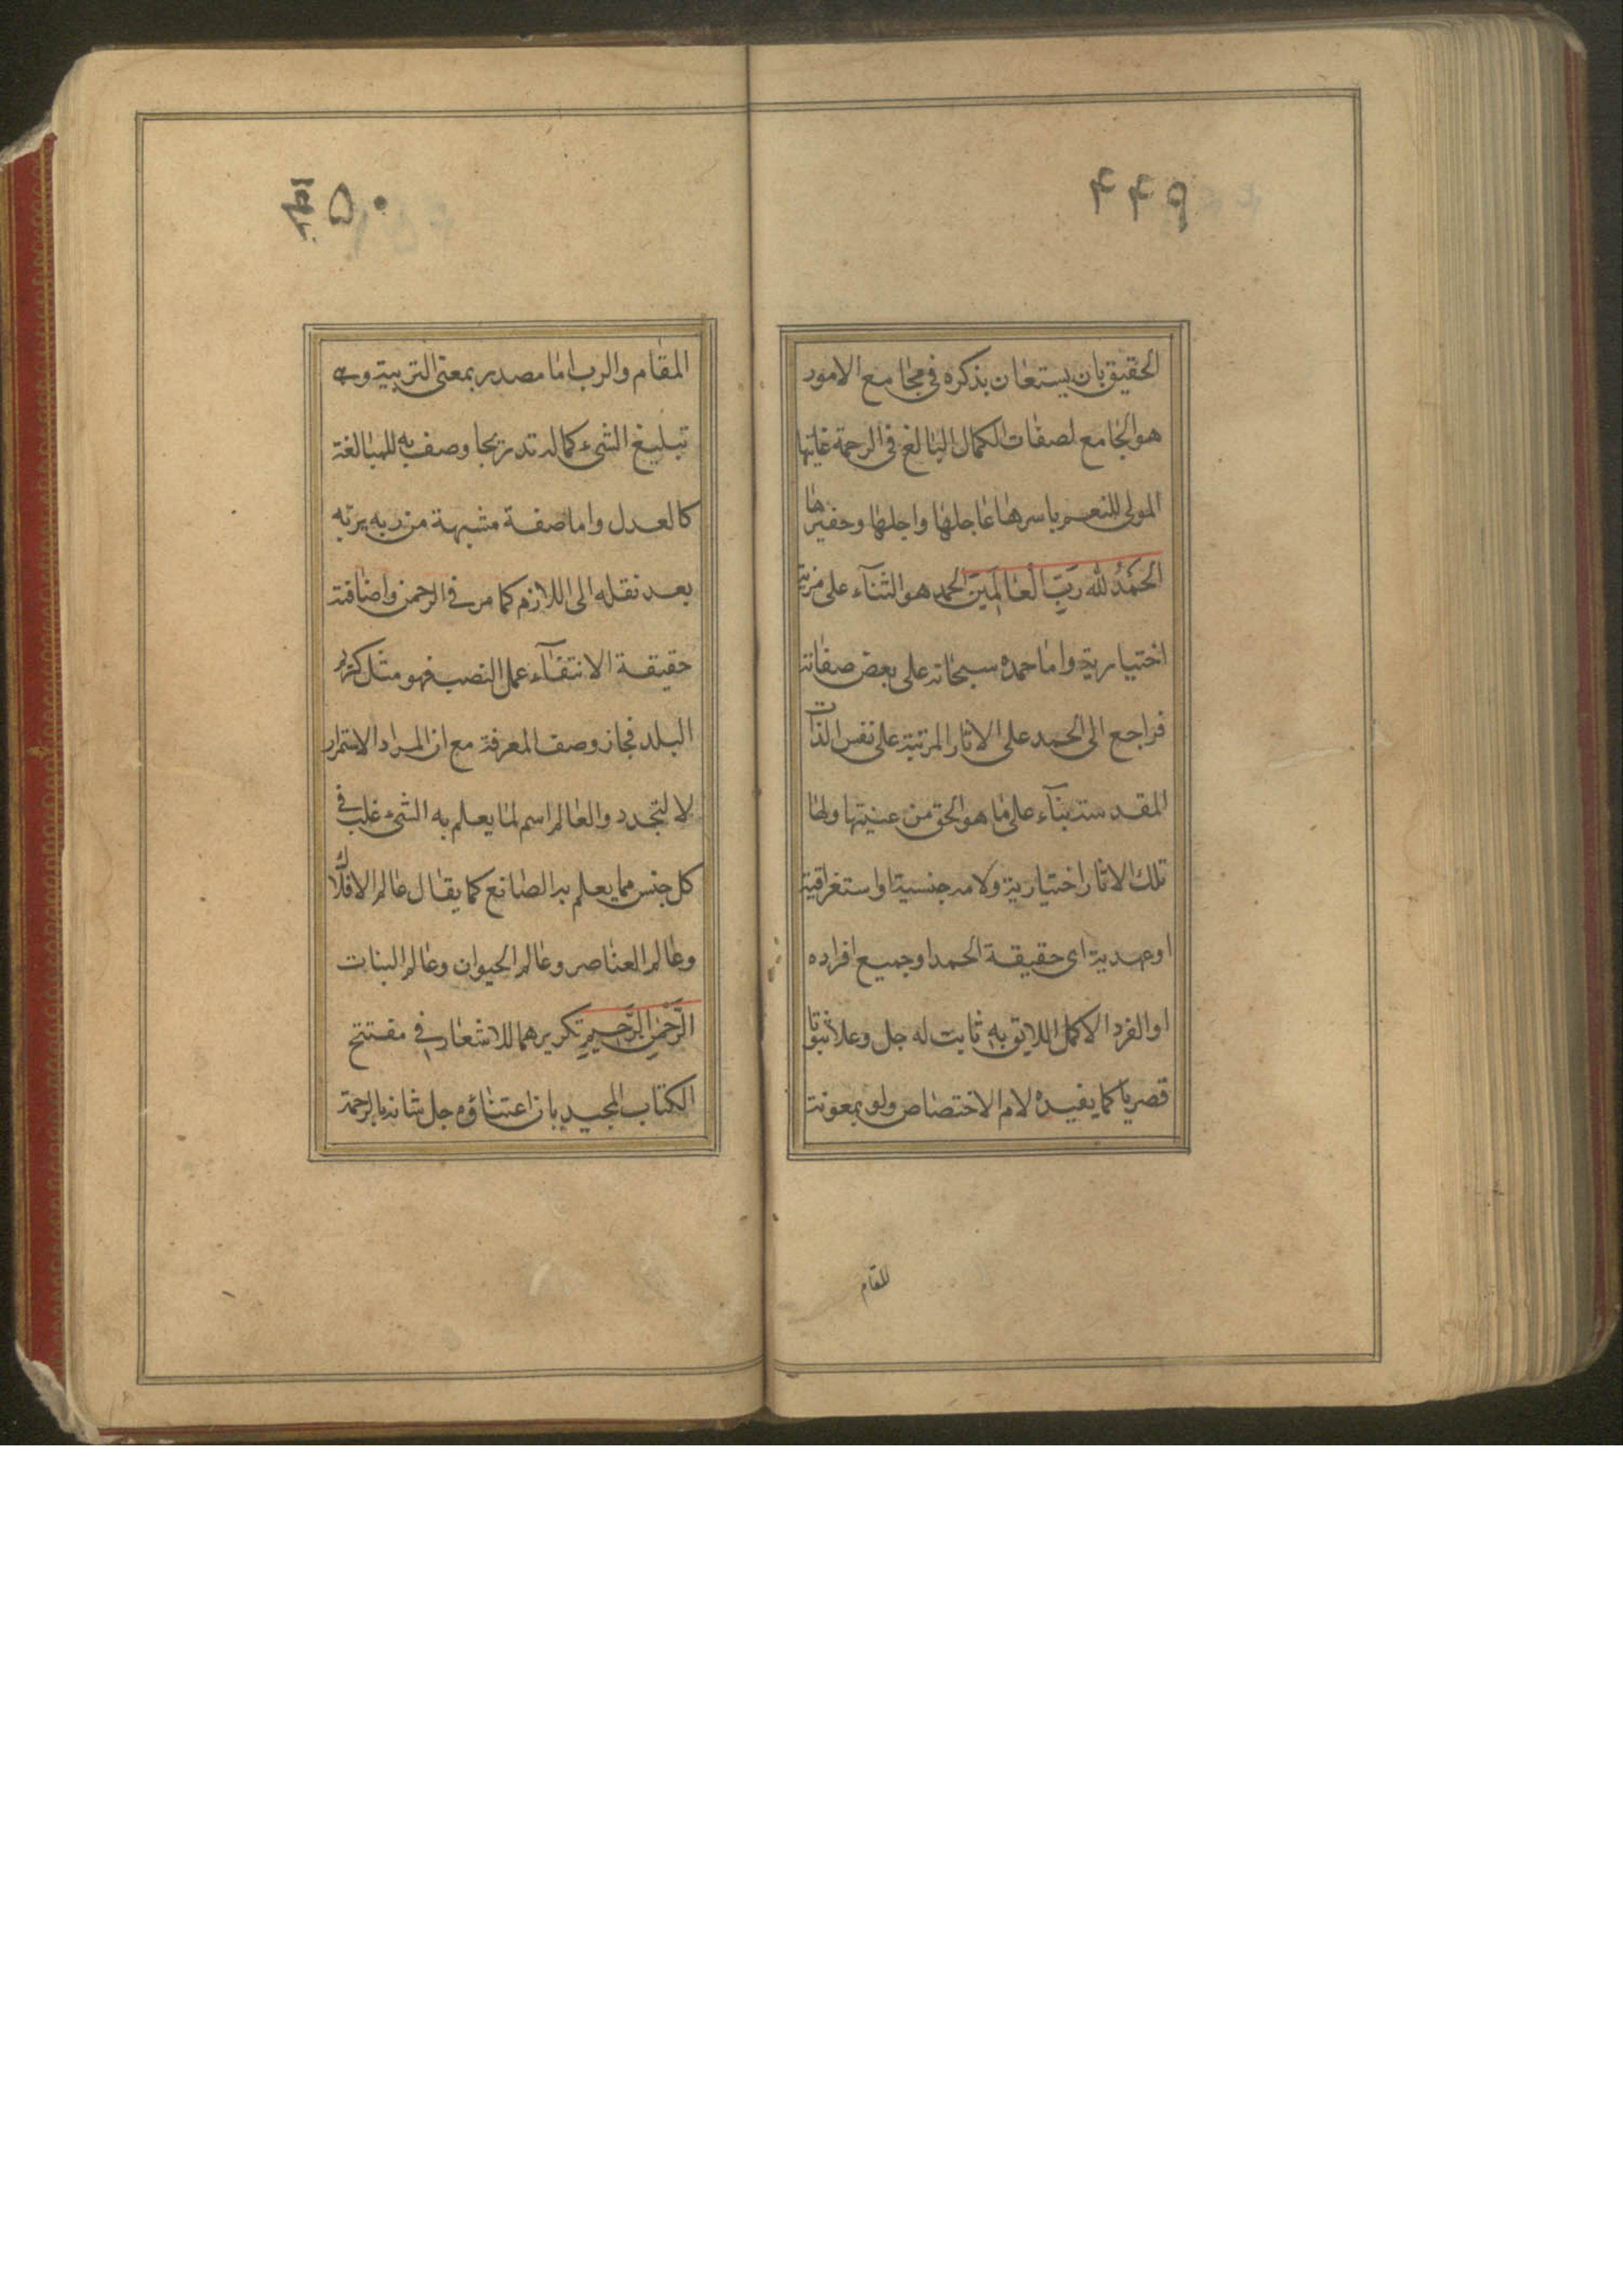 ۴۴۹
الحقيق بان يستعان بذكره في مجامع الامور
هو الجامع لصفات الكمال البالغ في الرحمة غايتها
المولى للنعم باسرها عاجلها واجلها وحقيرها
الْحَمْدُ لله رَبِّ الْعَالَمِينَ الحمد هو الثنآء على مزية
اختيارية واما حمده سبحانه على بعض صفاته
فراجع الى الحمد على الاثار المرتبة على نفس الذات
المقدسة بنآء على ما هو الحق من عينيتها ولها
تلك الاثار اختيارية ولامه جنسية او استغراقية
او عهدية اى حقيقة الحمد او جميع افراده
او الفرد الاكمل اللايق به ثابت له جل وعلا ثبوتا
قصريا كما يفيده لام الاختصاص ولو بمعونة
المقام
۴۵۰
المقام والرب اما مصدر بمعنى التربية وهى
تبليغ الشىء كماله تدريجا وصف به للمبالغة
كالعدل واما صفة مشبهة من ربه يربه
بعد نقله الى اللازم كما مر في الرحمن واضافته
حقيقة الانتفآء عمل النصب فهو مثل كريم
البلد فجاز وصف المعرفة مع ان المراد الاستمرار
لا التجدد والعالم اسم لما يعلم به الشىء غلب في
كل جنس مما يعلم به الصانع كما يقال عالم الافلاك
وعالم العناصر وعالم الحيوان وعالم النبات
الرَّحْمٰنِ الرَّحِيمِ تكريرهما للاشعار في مفتتح
الكتاب المجيد بان اعتناؤه جل شانه بالرحمة